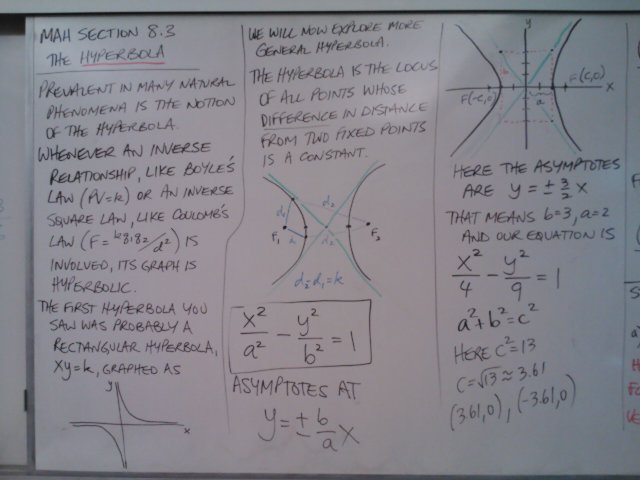 MAH SECTION 8.3
THE HYPERBOLA
PREVALENT IN MANY NATURAL
PHENOMENA IS THE NOTION
OF THE HYPERBOLA.
WHENEVER AN INVERSE
RELATIONSHIP, LIKE BOYLE'S
LAW (PV=k) OR AN INVERSE
SQUARE LAW, LIKE COULOMB'S
LAW (F=kg₁g₂/d²) IS
INVOLVED, ITS GRAPH IS
HYPERBOLIC.
THE FIRST HYPERBOLA YOU
SAW WAS PROBABLY A
RECTANGULAR HYPERBOLA,
XY=k, GRAPHED AS
y
x
WE WILL NOW EXPLORE MORE
GENERAL HYPERBOLA.
THE HYPERBOLA IS THE LOCUS
OF ALL POINTS WHOSE
DIFFERENCE IN DISTANCE
FROM TWO FIXED POINTS
IS A CONSTANT.
d₁ d₂
F₁ d₁ d₂ F₂
d₂-d₁=k
x²/a² - y²/b² = 1
ASYMPTOTES AT
y=± b/a x
y
b
F(-c,0) a F(c,0) x
HERE THE ASYMPTOTES
ARE y = ± 3/2 x
THAT MEANS b=3, a=2
AND OUR EQUATION IS
x²/4 - y²/9 = 1
a²+b²=c²
HERE c²=13
c=√13 ≈ 3.61
(3.61,0), (-3.61,0)